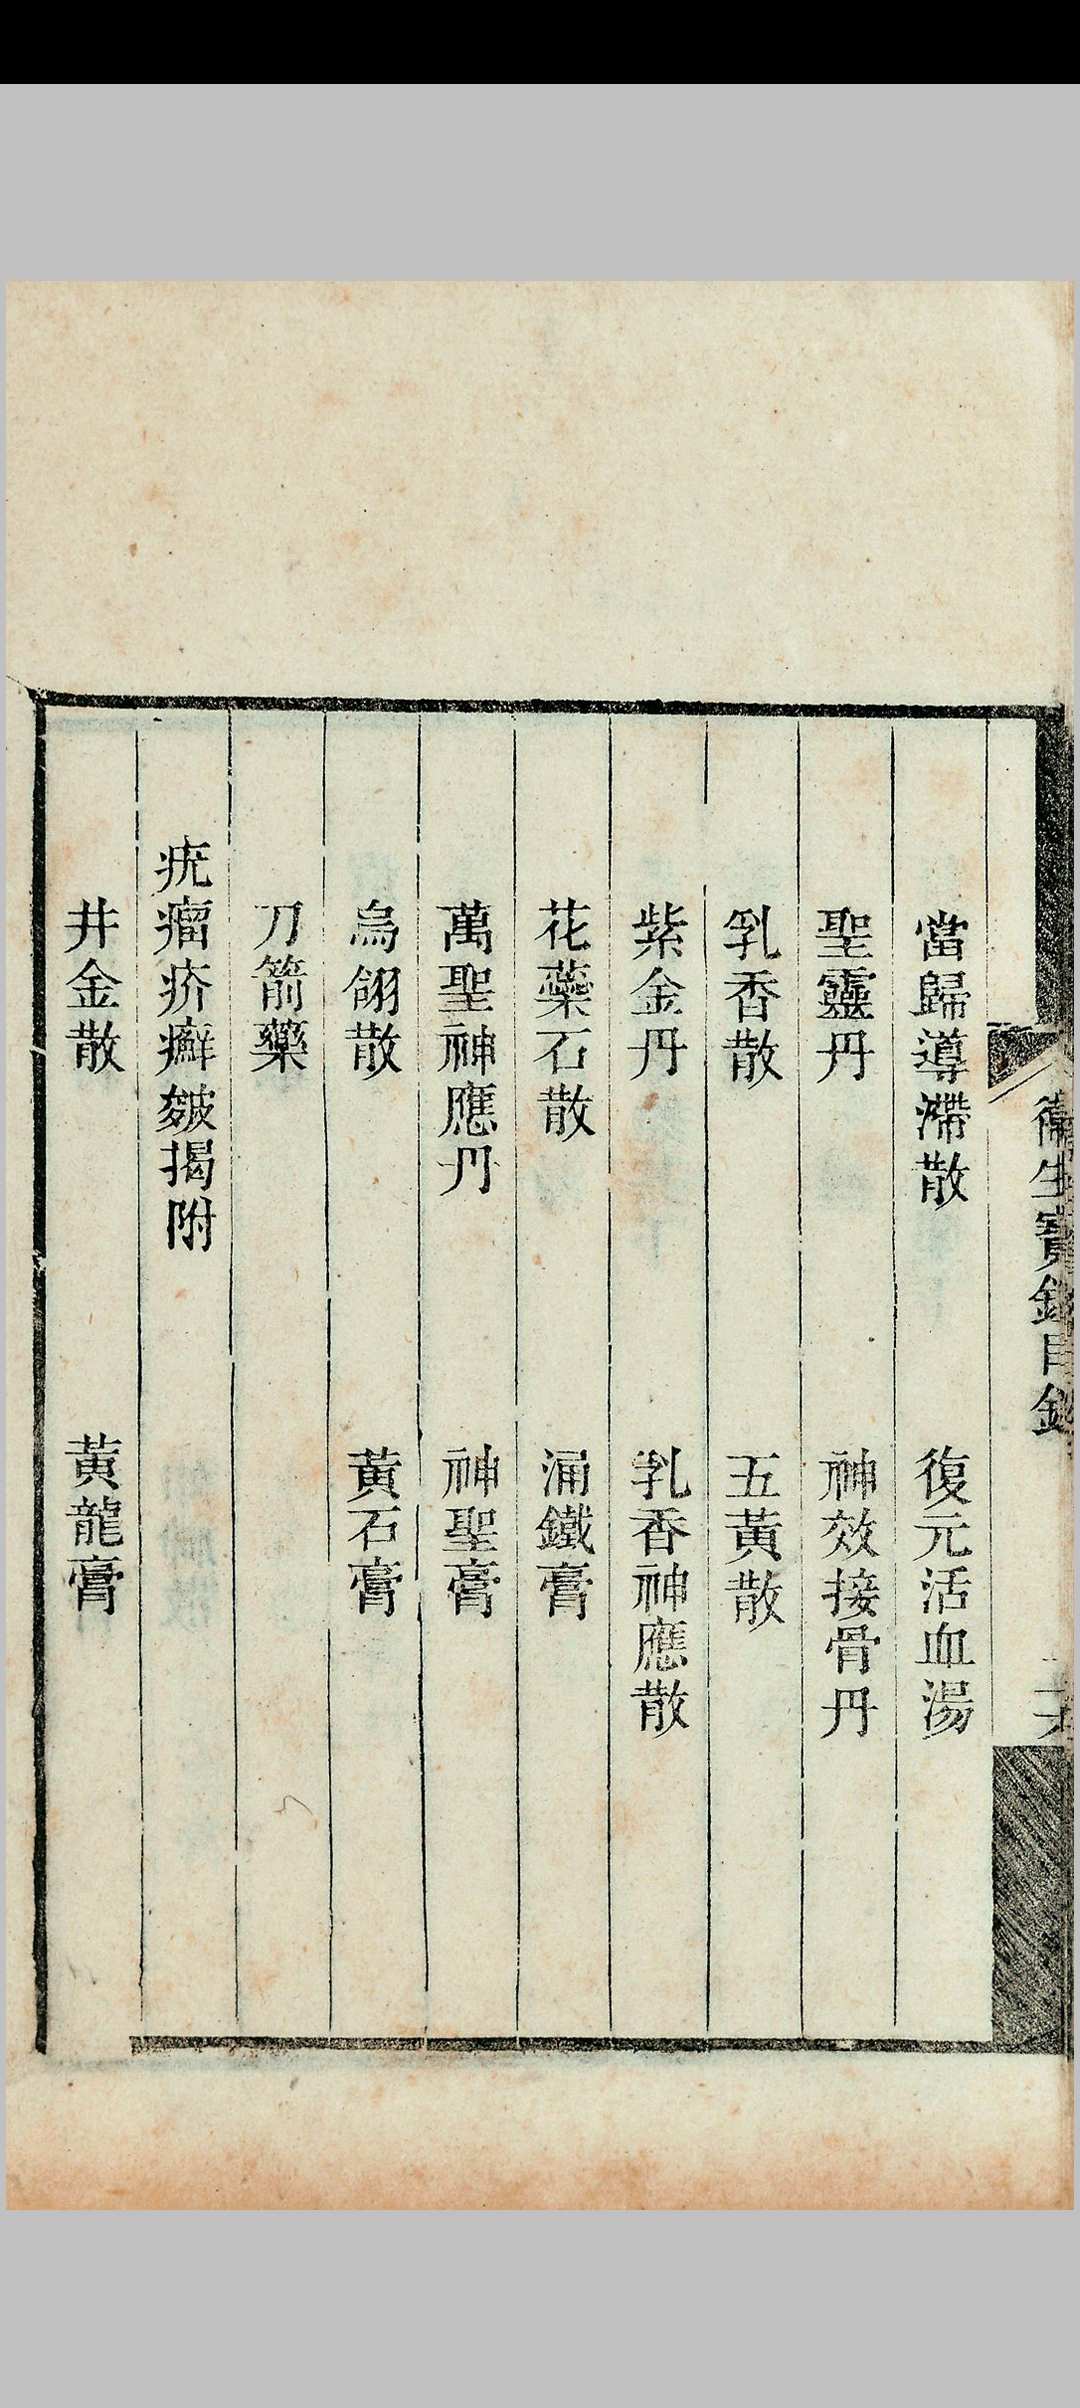 衞生寶鑑目錄
當歸導滯散 復元活血湯
聖靈丹 神效接骨丹
乳香散 五黃散
紫金丹 乳香神應散
花蘂石散 涌鐵膏
萬聖神應丹 神聖膏
烏翎散 黃石膏
刀箭藥
疣瘤疥癬皴揭附
井金散 黃龍膏